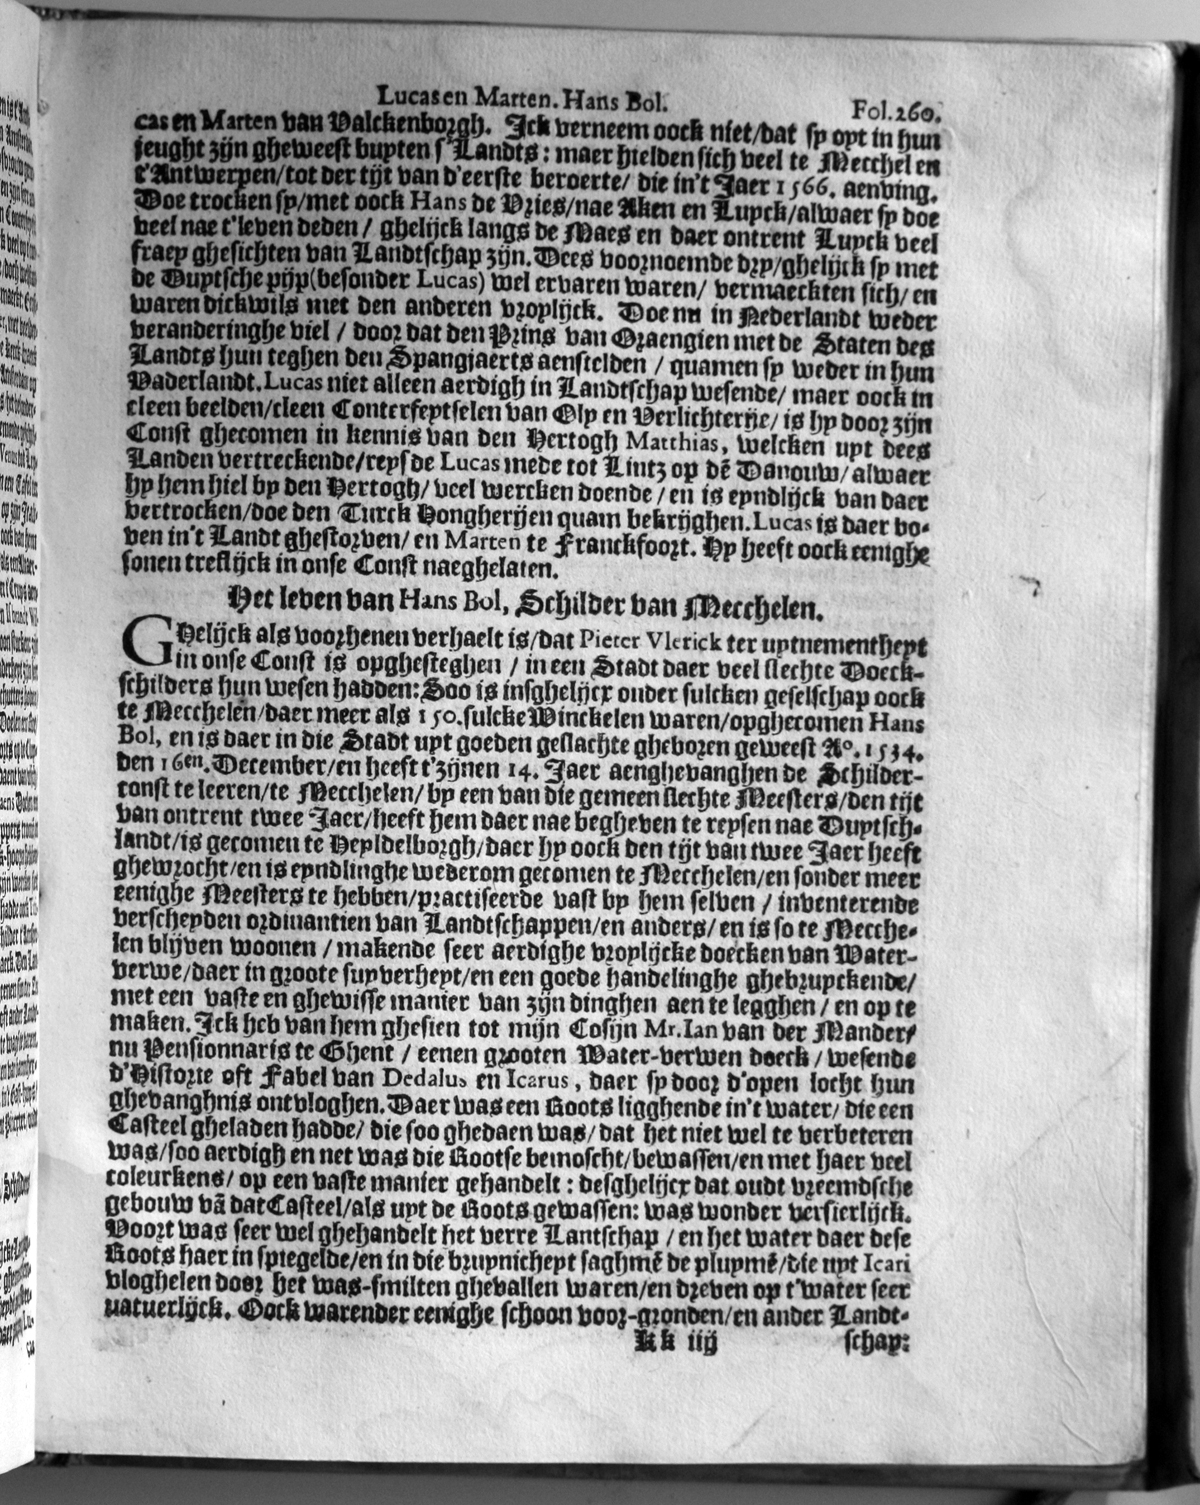 Lucas en Marten. Hans Bol. Fol. 260.
cas en Marten van Valckenborgh. Ick verneem oock niet/dat sy oyt in hun
jeught zijn gheweest buyten s'Landts: maer hielden sich veel te Mecchel en
t'Antwerpen/tot der tijt van d'eerste beroerte/ die in't Jaer 1566. aenving.
Doe trocken sy/met oock Hans de Vries/nae Aken en Luyck/alwaer sy doe
veel nae t'leven deden / ghelijck langs de Maes en daer ontrent Luyck veel
fraey ghesichten van Landtschap zijn. Dees voornoemde dry/ghelijck sy met
de Duytsche pijp(besonder Lucas) wel ervaren waren/ vermaeckten sich/ en
waren dickwils met den anderen vroplijck. Doe nu in Nederlandt weder
veranderinghe viel / door dat den Prins van Oraengien met de Staten des
Landts hun teghen den Spangjaerts aenstelden / quamen sy weder in hun
Vaderlandt. Lucas niet alleen aerdigh in Landtschap wesende/ maer oock in
cleen beelden/cleen Conterfeytselen van Oly en Verlichterije/ is hy door zijn
Const ghecomen in kennis van den Hertogh Matthias, welcken uyt dees
Landen vertreckende/reysde Lucas mede tot Lintz op dē Danouw/ alwaer
hy hem hiel by den Hertogh/ veel wercken doende / en is eyndlijck van daer
vertrocken/doe den Turck Hongherijen quam bekrijghen. Lucas is daer bo-
ven in't Landt ghestorven/ en Marten te Franckfoort. Hy heeft oock eenighe
sonen treflijck in onse Const naeghelaten.
Het leven van Hans Bol, Schilder van Mecchelen.
GHelijck als voorhenen verhaelt is/dat Pieter Vlerick ter uytnementheyt
in onse Const is opghesteghen / in een Stadt daer veel slechte Doeck-
schilders hun wesen hadden: Soo is insghelijcx onder sulcken geselschap oock
te Mecchelen/daer meer als 150. sulcke Winckelen waren/opghecomen Hans
Bol, en is daer in die Stadt uyt goeden geslachte gheboren geweest Aº. 1534.
den 16en. December/en heeft t'zijnen 14. Jaer aenghevanghen de Schilder-
const te leeren/te Mecchelen/ by een van die gemeen slechte Meesters/den tijt
van ontrent twee Jaer/heeft hem daer nae begheven te reysen nae Duytsch-
landt/is gecomen te Heyldelborgh/daer hy oock den tijt van twee Jaer heeft
ghewrocht/en is eyndlinghe wederom gecomen te Mecchelen/en sonder meer
eenighe Meesters te hebben/practiseerde vast by hem selven / inventerende
verscheyden ordinantien van Landtschappen/en anders/ en is so te Mecche-
len blijven woonen / makende seer aerdighe vroplijcke doecken van Water-
verwe/daer in groote suyverheyt/en een goede handelinghe ghebruyckende/
met een vaste en ghewisse manier van zijn dinghen aen te legghen / en op te
maken. Ick heb van hem ghesien tot mijn Cosijn Mr. Ian van der Mander/
nu Pensionnaris te Ghent / eenen grooten Water-verwen doeck / wesende
d'Historie oft Fabel van Dedalus en Icarus, daer sy door d'open locht hun
ghevanghnis ontvloghen. Daer was een Roots ligghende in't water/ die een
Casteel gheladen hadde/ die soo ghedaen was/ dat het niet wel te verbeteren
was/soo aerdigh en net was die Rootse bemoscht/bewassen/en met haer veel
coleurkens/ op een vaste manier gehandelt : desghelijcx dat oudt vreemdsche
gebouw vā dat Casteel/als uyt de Roots gewassen: was wonder versierlijck.
Voort was seer wel ghehandelt het verre Lantschap / en het water daer dese
Roots haer in spiegelde/en in die bruynicheyt saghmē de pluymē/die uyt Icari
vloghelen door het was-smilten ghevallen waren/en dreven op t'water seer
natuerlijck. Oock warender eenighe schoon voor-gronden/en ander Landt-
Kk iij schap: